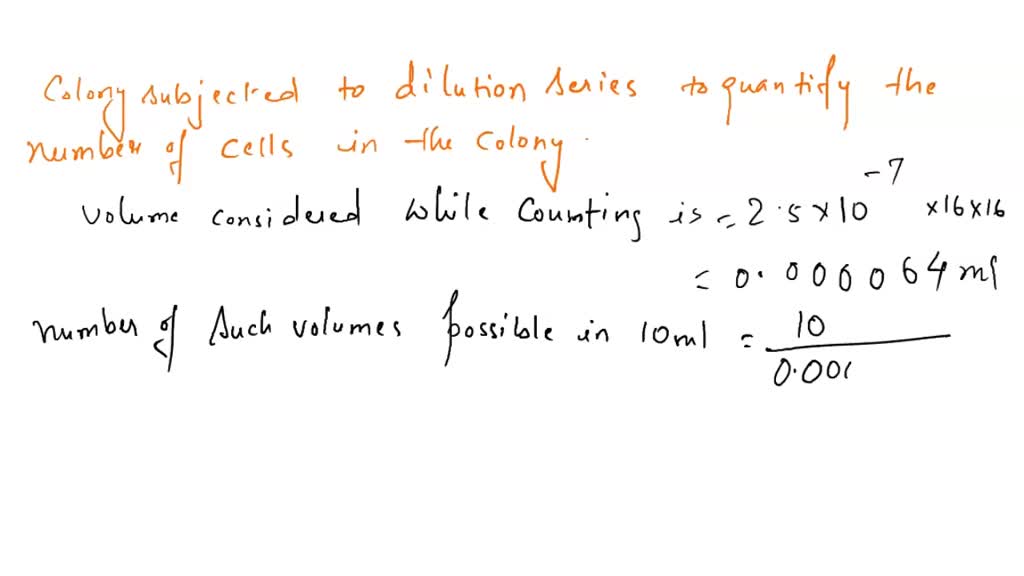 Colony subjected to dilution series to quantify the
number of cells in the colony.
volume considered while counting is = 2.5x10⁻⁷ x16x16
= 0.000064 ml
number of such volumes possible in 10ml = 10
0.000